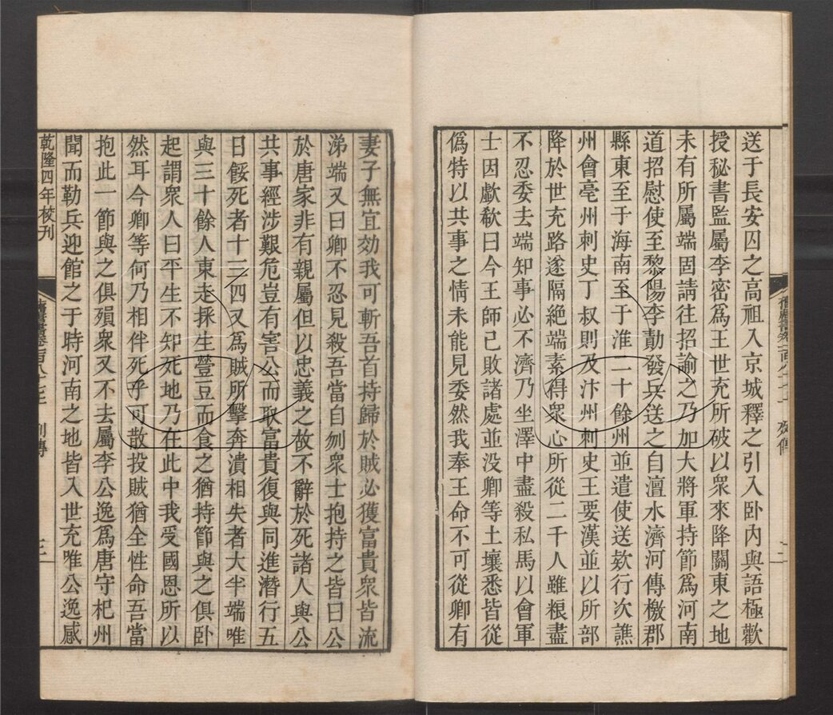 送于長安囚之高祖入京城釋之引入卧內與語極歡
授秘書監屬李密爲王世充所破以衆來降關東之地
未有所屬端固請往招諭之乃加大將軍持節爲河南
道招慰使至黎陽李勣發兵送之自澶水濟河傳檄郡
縣東至于海南至于淮二十餘州並遣使送欵行次譙
州會亳州刺史丁叔則及汴州刺史王要漢並以所部
降於世充路遂隔絶端素得衆心所從二千人雖粮盡
不忍委去端知事必不濟乃坐澤中盡殺私馬以會軍
士因歔欷曰今王師已敗諸處並没卿等土壤悉皆從
僞特以共事之情未能見委然我奉王命不可從卿有
妻子無宜効我可斬吾首持歸於賊必獲富貴衆皆流
涕端又曰卿不忍見殺吾當自刎衆士抱持之皆曰公
於唐家非有親屬但以忠義之故不辭於死諸人與公
共事經涉艱危豈有害公而取富貴復與同進潛行五
日餒死者十三四又爲賊所擊奔潰相失者大半端唯
與三十餘人東走採生䝁豆而食之猶持節與之俱卧
起謂衆人曰平生不知死地乃在此中我受國恩所以
然耳今卿等何乃相伴死乎可散投賊猶全性命吾當
抱此一節與之俱殞衆又不去屬李公逸爲唐守杞州
聞而勒兵迎館之于時河南之地皆入世充唯公逸感
乾隆四年校刊
列傳
三